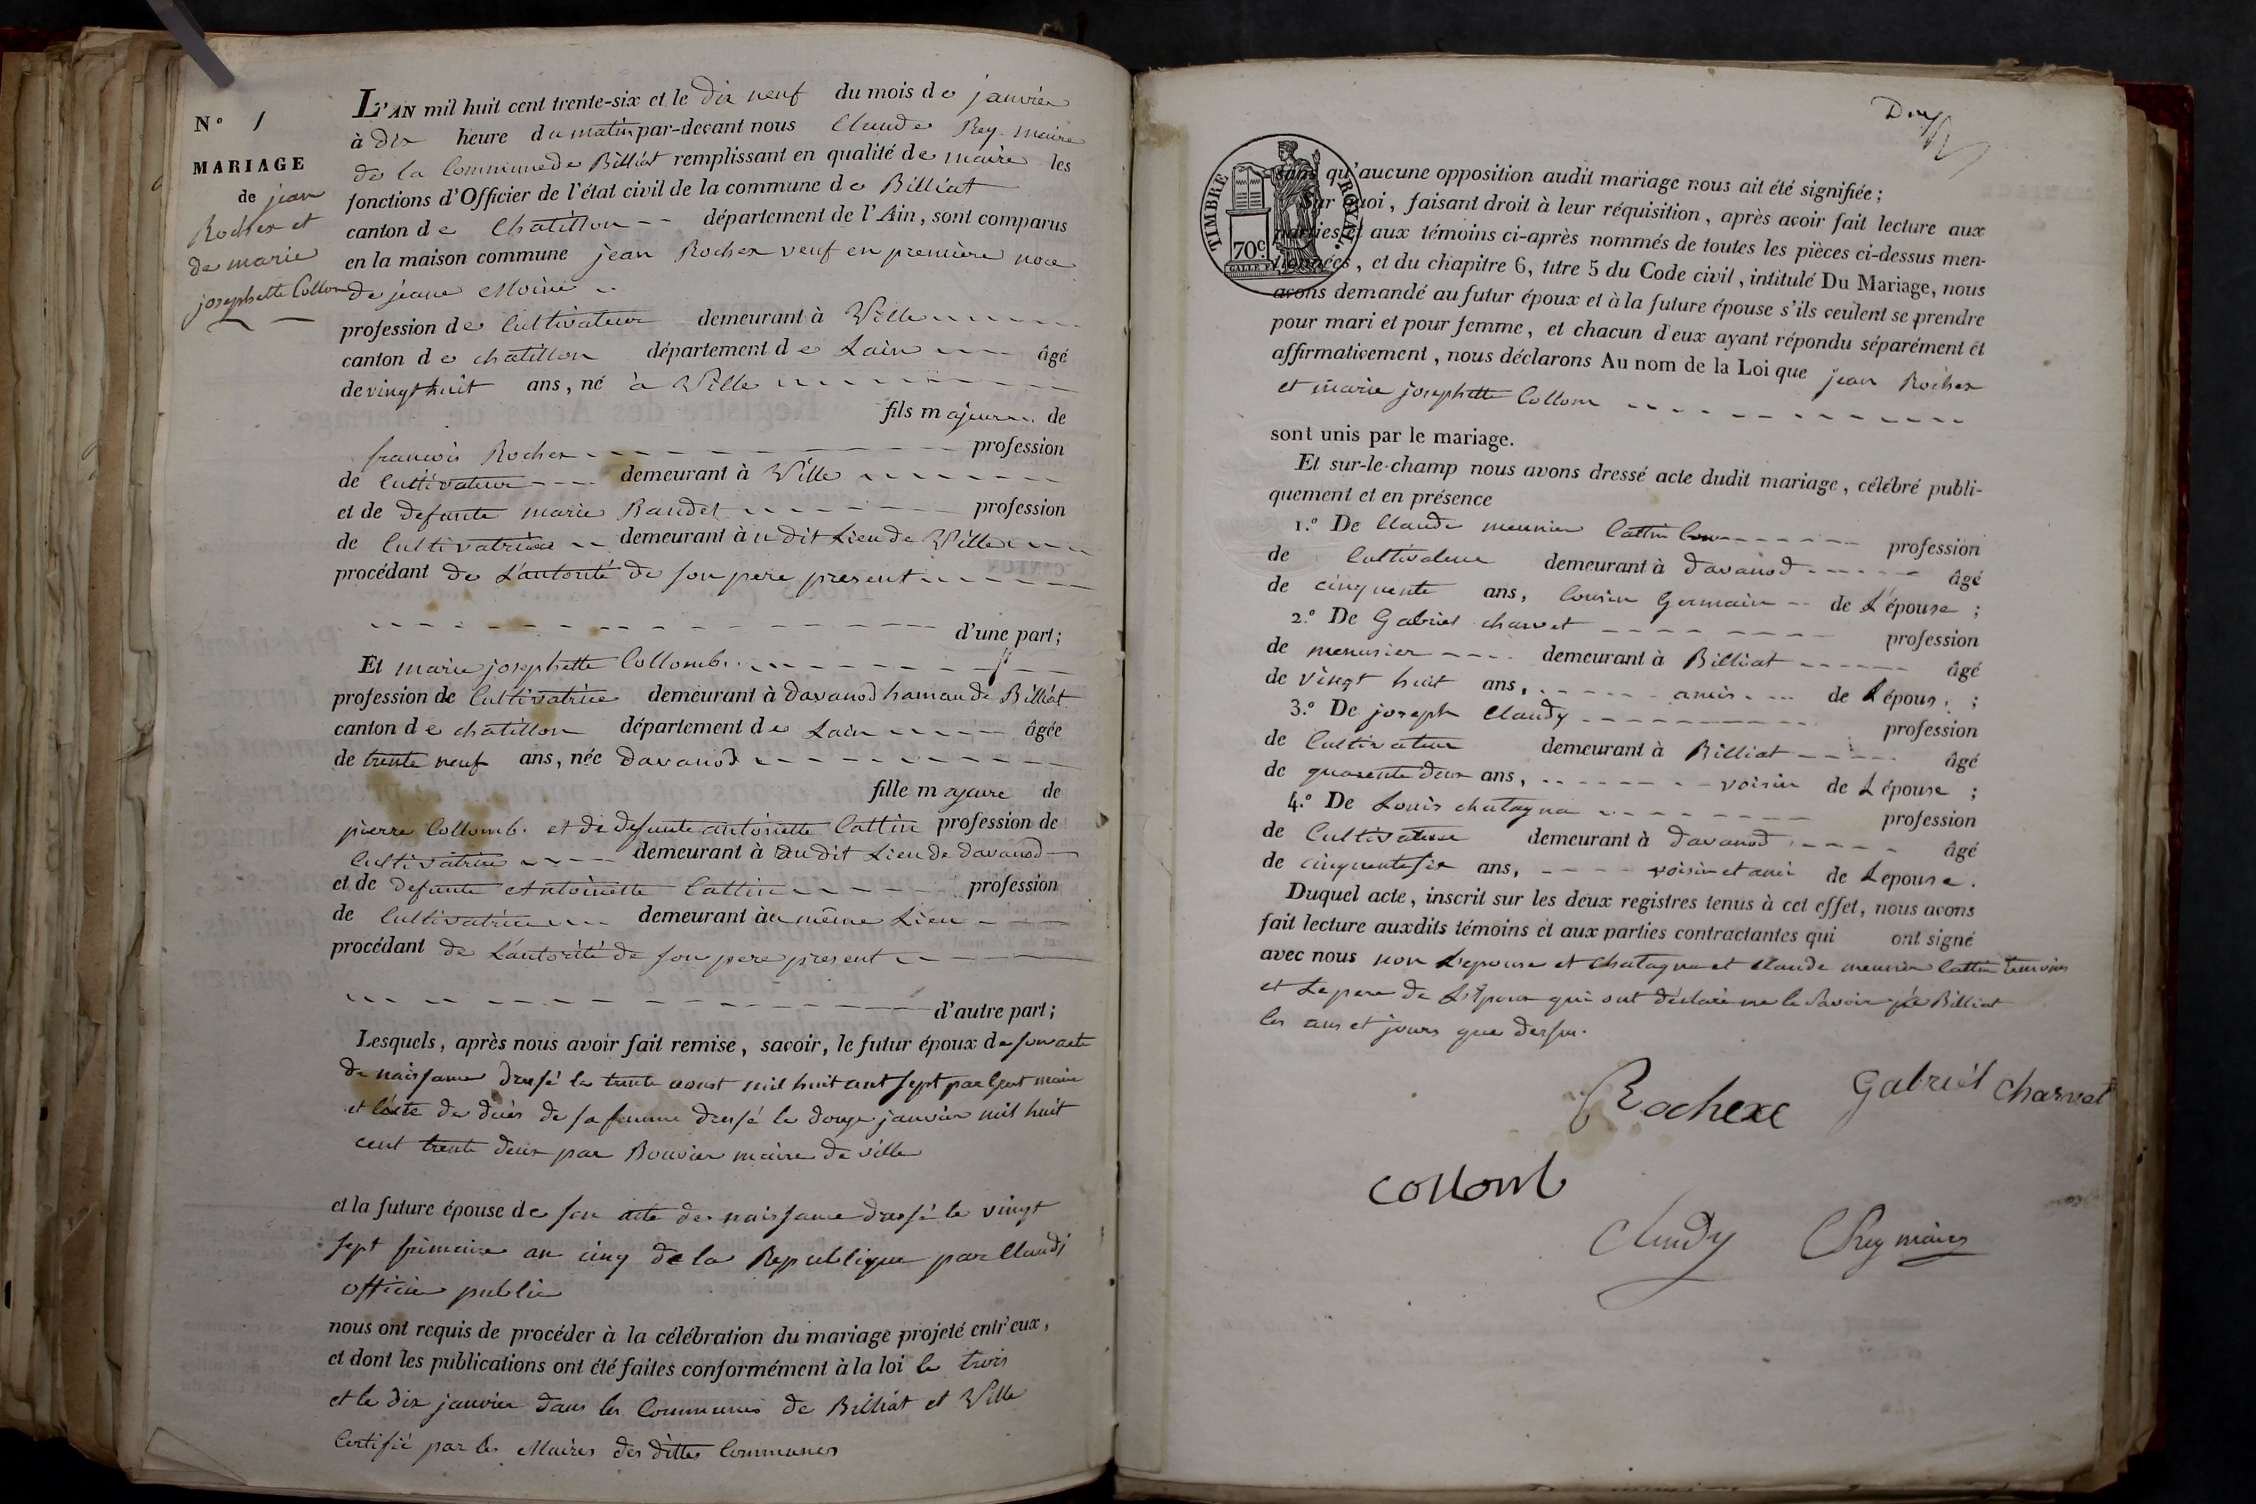 N° 1
MARIAGE
de jean
Rochex et
de marie
josephette Collomb
L'AN mil huit cent trente-six et le dix neuf du mois de janvier
à dix heure du matin par-devant nous Claude Rey maire
de la Commune de Billiat remplissant en qualité de maire les
fonctions d'Officier de l'état civil de la commune de Billiat
canton de Chatillon département de l'Ain, sont comparus
en la maison commune jean Rochex veuf en premiere noce
de jeane Moine
profession de Cultivateur demeurant à Ville
canton de chatillon département de Lain âgé
de vingt huit ans, né à Ville
fils majeur de
francois Rochex profession
de Cultivateur demeurant à Ville
et de defunte marie Baudet profession
de Cultivatrice demeurant à udit Lieu de Ville
procédant de L'autorité de son pere present
d'une part;
Et marie josephette Collomb
profession de Cultivatrice demeurant à davanod hamau de Billiat
canton de chatillon département de Lain âgée
de trente neuf ans, née davanod
fille majeure de
pierre Collomb. et de defunte antoinette Cattin profession de
Cultivatrice demeurant à audit Lieu de davanod
et de defunte Antoinette Cattin profession
de Cultivatrice demeurant àu même Lieu
procédant de L'autorité de son pere present
d'autre part;
Lesquels, après nous avoir fait remise, savoir, le futur époux de son acte
de naissance dressé le trente aoust mil huit cent sept par maire
et l'acte de décès de sa femme dressé le douze janvier mil huit
cent trente deux par Bouvier maire de ville
et la future épouse de son acte de naissance dressé le vingt
sept frimaire an cinq de la Republique par Claudi
officier public
nous ont requis de procéder à la célébration du mariage projeté entr'eux,
et dont les publications ont été faites conformément à la loi le trois
et le dix janvier dans les Communes de Billiat et Ville
Certifié par les Maires des dittes Communes
TIMBRE ROYAL
70c
sans qu'aucune opposition audit mariage nous ait été signifiée;
Sur quoi, faisant droit à leur réquisition, après avoir fait lecture aux
parties et aux témoins ci-après nommés de toutes les pièces ci-dessus men-
tionnées, et du chapitre 6, titre 5 du Code civil, intitulé Du Mariage, nous
avons demandé au futur époux et à la future épouse s'ils veulent se prendre
pour mari et pour femme, et chacun d'eux ayant répondu séparément et
affirmativement, nous déclarons Au nom de la Loi que jean Rochex
et marie josephette Collom
sont unis par le mariage.
Et sur-le-champ nous avons dressé acte dudit mariage, célébré publi-
quement et en présence
1.° De Claude meunier Cattin profession
de Cultivateur demeurant à davanod âgé
de cinquente ans, Cousin Germain de L'épouse;
2.° De Gabriel charvet profession
de menusier demeurant à Billiat âgé
de vingt huit ans, amis de Lépoux;
3.° De joseph Claudy profession
de Cultivateur demeurant à Billiat âgé
de quarente deux ans, voisin de Lépouse;
4.° De Louis chatagna profession
de Cultivateur demeurant à davanod âgé
de cinquente six ans, voisin et ami de Lepouse.
Duquel acte, inscrit sur les deux registres tenus à cet effet, nous avons
fait lecture auxdits témoins et aux parties contractantes qui ont signé
avec nous non L'epouse et Chatagna et Claude meunier Cattin temoins
et Le pere de L'Epoux qui ont déclaré ne le Savoir Billiat
les ans et jours que dessus.
Rochexe
Gabriel Charvet
Collomb
Claudy
C Rey maire